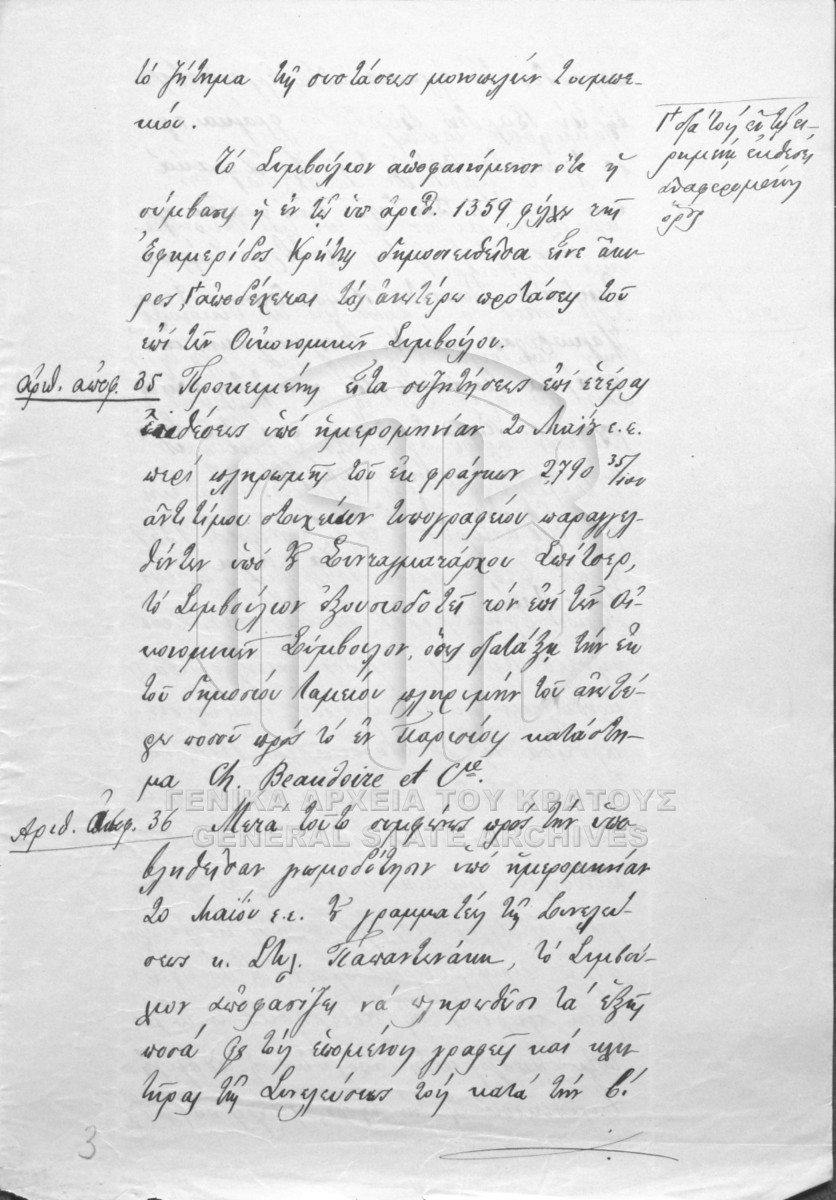 τό ζήτημα τῆς συστάσεως μονοπωλίων τουμπε-
κίου.
Τό Συμβούλιον ἀποφαινόμενον ὅτι ἡ
σύμβασις ἡ ἐν τῷ ὑπ ἀριθ. 1359 φύλλῳ τῆς
Ἐφημερίδος Κρήτης δημοσιευθεῖσα εἶνε ἄκυ-
ρος, ἀποδέχεται τάς ἀνωτέρω προτάσεις τοῦ
ἐπί τῶν Οἰκονομικῶν Συμβούλου.
διά τούς ἐν τῇ εἰ-
ρημένῃ ἐκθέσει
ἀναφερομένους
ὅρους
ἀριθ. ἀποφ. 35 Προκειμένης εἶτα συζητήσεως ἐπί ἑτέρας
ἐκθέσεως ὑπό ἡμερομηνίαν 20 Μαΐου ε.ε.
περί πληρωμῆς τοῦ ἐκ φράγκων 2,790 35/100
ἀντιτίμου στοιχείων τυπογραφείου παραγγελ-
θέντων ὑπό τοῦ Συνταγματάρχου Σπίτσερ,
τό Συμβούλιον ἐξουσιοδοτεῖ τόν ἐπί τῶν Οἰ-
κονομικῶν Σύμβουλον, ὅπως διατάξῃ τήν ἐκ
τοῦ δημοσίου ταμείου πληρωμήν τοῦ ἀνωτέ-
ρω ποσοῦ πρός τό ἐν Παρισίοις κατάστη-
μα Ch. Beaudoire et Cie.
Ἀριθ. ἀποφ. 36 Μετά τοῦτο συμφώνως πρός τήν ὑπο-
βληθεῖσαν γνωμοδότησιν ὑπό ἡμερομηνίαν
20 Μαΐου ε.ε. τοῦ γραμματέως τῆς Συνελεύ-
σεως κ. Στυλ. Παπαντωνάκη, τό Συμβού-
λιον ἀποφασίζει νά πληρωθῶσι τά ἑξῆς
ποσά εἰς τούς ἑπομένους γραφεῖς καί κλη-
τῆρας τῆς Συνελεύσεως τούς κατά τήν β.'
3
ΓΕΝΙΚΑ ΑΡΧΕΙΑ ΤΟΥ ΚΡΑΤΟΥΣ
GENERAL STATE ARCHIVES